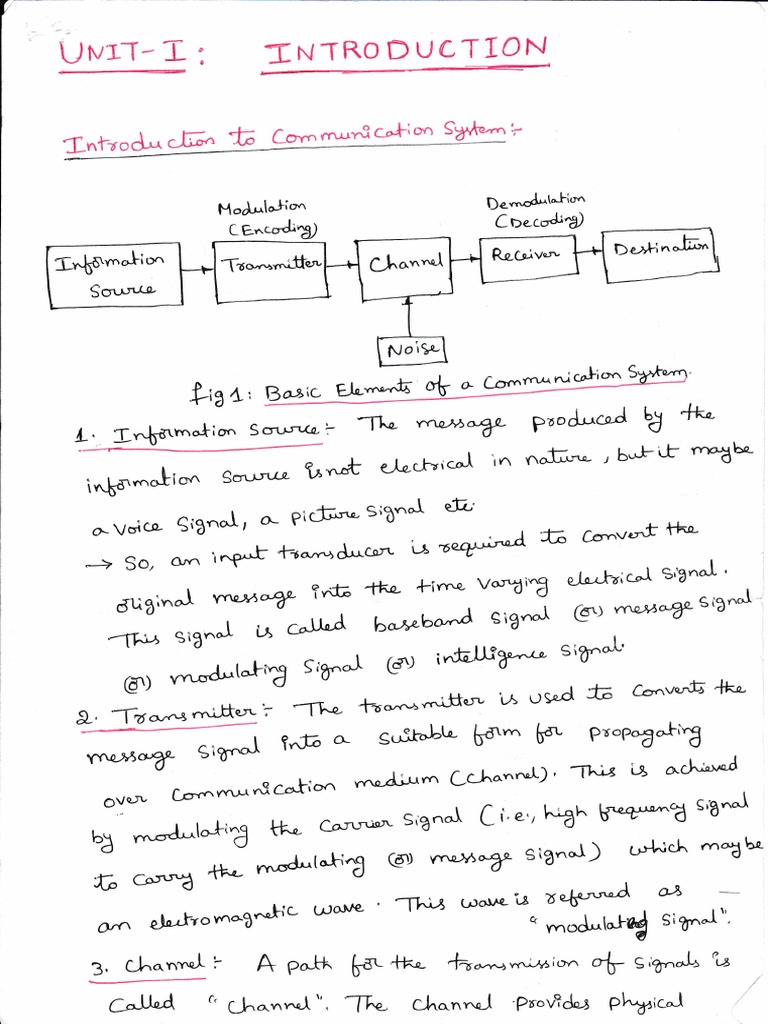 UNIT-I: INTRODUCTION
Introduction to Communication System:-
Modulation
(Encoding)
Demodulation
(Decoding)
Information
Source
Transmitter
Channel
Receiver
Destination
Noise
fig 1: Basic Elements of a Communication System.
1. Information Source:- The message produced by the
information source is not electrical in nature, but it maybe
a voice signal, a picture signal etc.
→ So, an input transducer is required to convert the
original message into the time varying electrical signal.
This signal is called baseband signal (or) message signal
(or) modulating signal (or) intelligence signal.
2. Transmitter:- The transmitter is used to converts the
message signal into a suitable form for propagating
over communication medium (channel). This is achieved
by modulating the carrier signal (i.e., high frequency signal
to carry the modulating (or) message signal) which maybe
an electromagnetic wave. This wave is referred as —
"      signal".
3. Channel:- A path for the transmission of signals is
called "channel". The channel provides physical